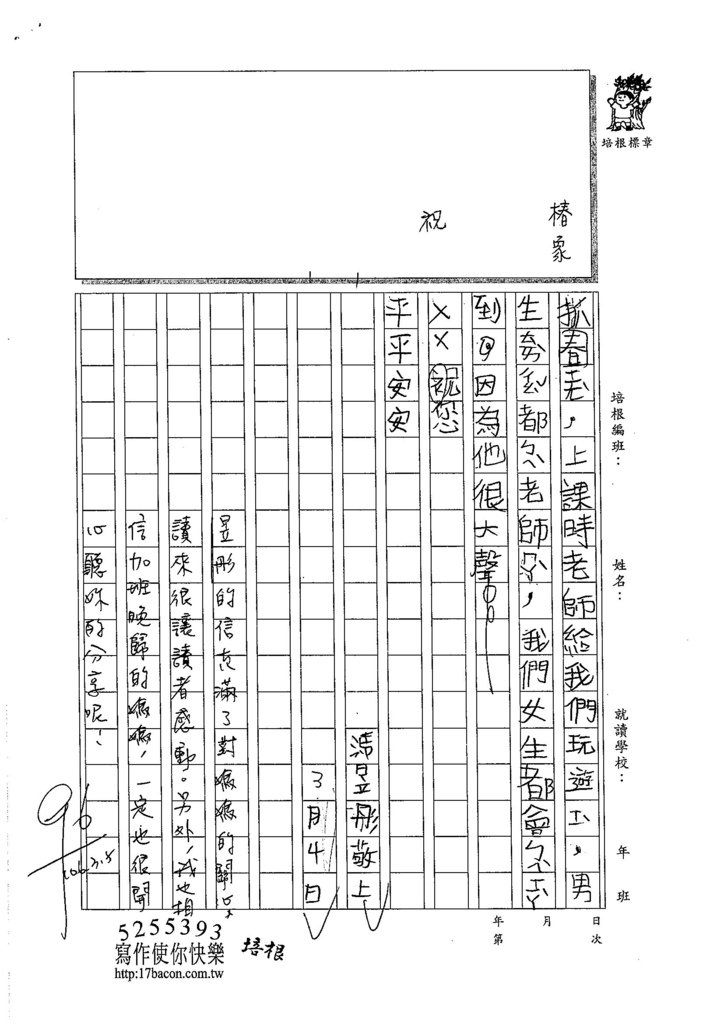 培根標章
椿象
祝
培根編班：
姓名：
就讀學校：
年
班
抓春虫，上課時老師給我們玩遊ㄒㄧˋ，男
生
都
老師
，我們女生都會
到
因為他很大聲
××祝您
平平安安
昱彤敬上
3月4日
昱彤的信充滿了對媽媽的關心，
讀來很讓讀者感動。另外，我也相
信加班晚歸的媽媽，一定也很開
心聽妳的分享呢！
96
106.3.8
日
月
年
第
次
5255393
寫作使你快樂
培根
http:17bacon.com.tw